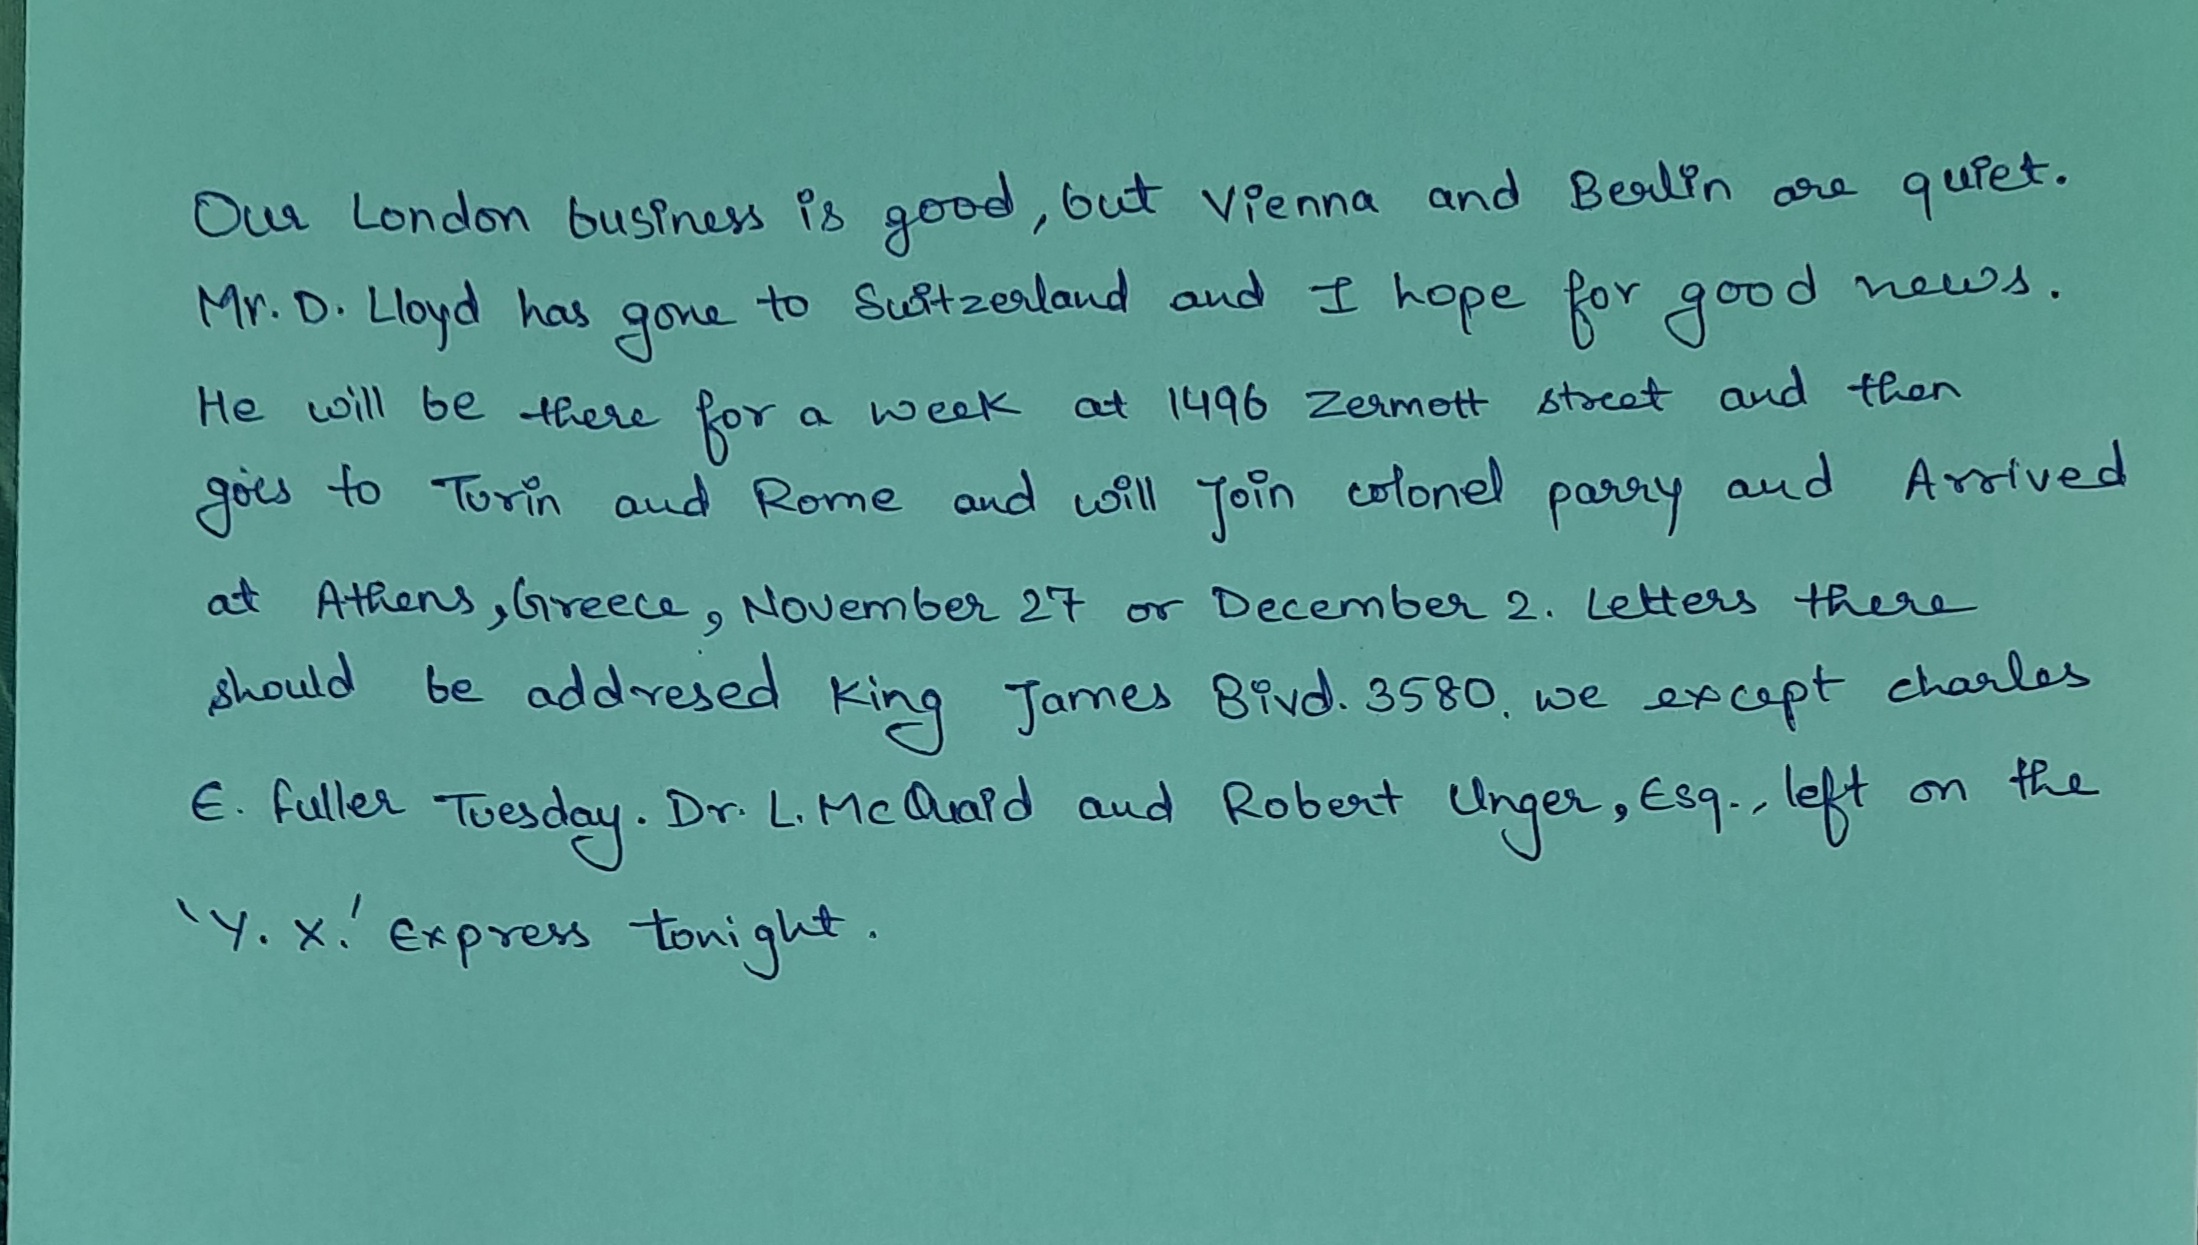 Our London business is good, but Vienna and Berlin are quiet.
Mr. D. Lloyd has gone to Switzerland and I hope for good news.
He will be there for a week at 1496 Zermott street and then
goies to Turin and Rome and will Join colonel parry and Arrived
at Athens, Greece, November 27 or December 2. Letters there
should be addresed King James Bivd. 3580. we except charles
E. fuller Tuesday. Dr. L. McQuaid and Robert Unger, Esq., left on the
'Y. X.' Express tonight.